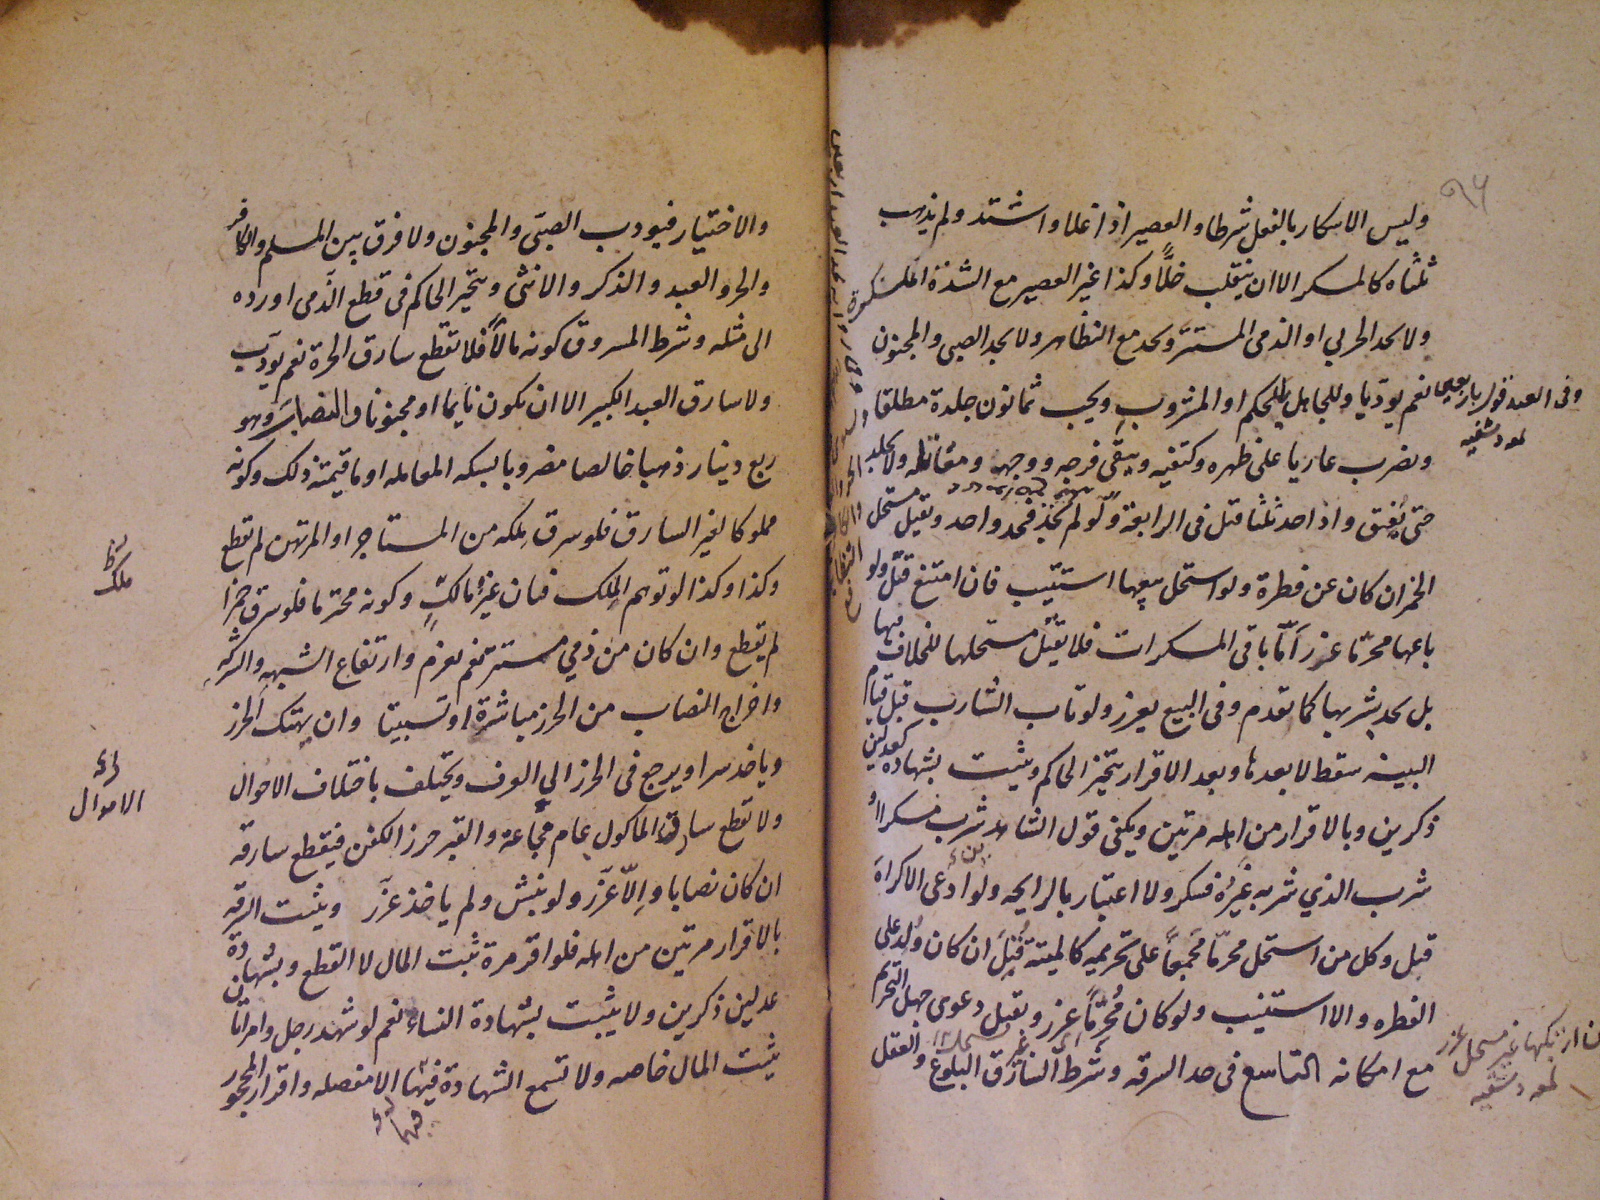 وليس الاسكار بالفعل شرطا والعصير اذا غلا واشتد ولم يذهب
ثلثاه كالمسكر الا ان ينقلب خلًّا وكذا غير العصير مع الشدّة المسكرة
ولا يحد الحربي او الذمي المستتر ويحد مع التظاهر ولا يحد الصبي والمجنون
نعم يودّبا وللجاهل بالحكم او المشروب ويجب ثمانون جلدة مطلقا
وفى العبد قول باربعين
لمعه دمشقيه
ويضرب عاريا على ظهره وكتفيه ويتقى فرجه ووجهه ومقاتله ولا يجلد
حتى يُفيق واذا حد ثلثا قتل فى الرابعة ولو لم يحد فحد واحد ويقتل مستحل
الخمر ان كان عن فطرة ولو استحل بيعها استتيب فان امتنع قتل ولو
باعها محرّما عزر امّا باقى المسكرات فلا يقتل مستحلها للخلاف فيها
بل يحد بشربها كما تقدم وفى البيع يعزر ولو تاب الشارب قبل قيام
البينه سقط لا بعدها وبعد الاقرار يتخير الحاكم ويثبت بشهاده عدلين
ذكرين وبالاقرار من اهله مرتين ويكفى قول الشاهد شرب مسكرا او
شرب الذي شربه غيره فسكر ولا اعتبار بالرايحه ولو ادعى الاكراه
قبل وكل من استحل محرّما مجمعاً على تحريمه كالميتة قُتِلَ ان كان وُلد على
الفطره والا استتيب ولو كان مُحرّماً عزر وتقبل دعوى جهل التحريم
مع امكانه التاسع فى حد السرقه وشرط السارق البلوغ والعقل
ان ارتكبها غير مستحل عزر
لمعه دمشقيه
والاختيار فيودب الصبَى والمجنون ولا فرق بين المسلم والكافر
والحر والعبد والذكر والانثى ويتخير الحاكم فى قطع الذّمى او رده
الى مثله وشرط المسروق كونه مالاً فلا تقطع سارق الحرة نعم يودّب
ولا سارق العبد الكبير الا ان يكون نايما او مجنونا والنصاب وهو
ربع دينار ذهبا خالصا مضروبا بسكه المعامله او ما قيمته ذلك وكونه
مملوكا لغير السارق فلو سرق ملكه من المستاجر او المرتهن لم يقطع
وكذا وكذا لو توهم الملك فبان غيرُ مالكٍ وكونه محترما فلو سرق خمرا
لم يقطع وان كان من ذمي مستتر نعم يعزم وارتفاع الشبهه والشركه
واخراج النصاب من الحرز مباشرة او تسبيبا وان يهتك الحرز
وياخذ سرا ويرجع فى الحرز الي العرف ويختلف باختلاف الاحوال
الاموال
ولا تقطع سارق الماكول بعام مجاعة والقبر حرز الكفن فيقطع سارقه
ان كان نصابا والّا عَزر ولو نبش ولم ياخذ عزّر ويثبت السرقه
بالاقرار مرتين من اهله فلو اقر مرة ثبت المال لا القطع وبشهادة
عدلين ذكرين ولا يثبت بشهادة النساء نعم لو شهد رجل وامراتان
يثبت المال خاصه ولا تسمع الشهادة فيها الا مفصله واقرار المحجور